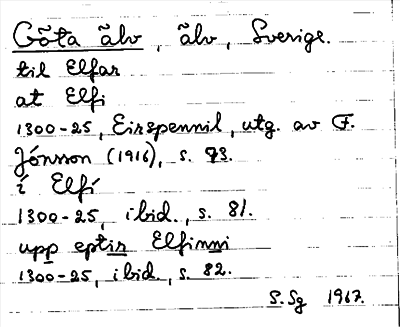 Gõta ãlv, ãlv, Sverige.
til Elfar
at Elfi
1300-25, Eirspennil, utg. av F.
Jónsson (1916), s. 73.
í Elfí
1300-25, ibid., s. 81.
upp eptir Elfinni
1300-25, ibid., s. 82.
S.Sg 1967.